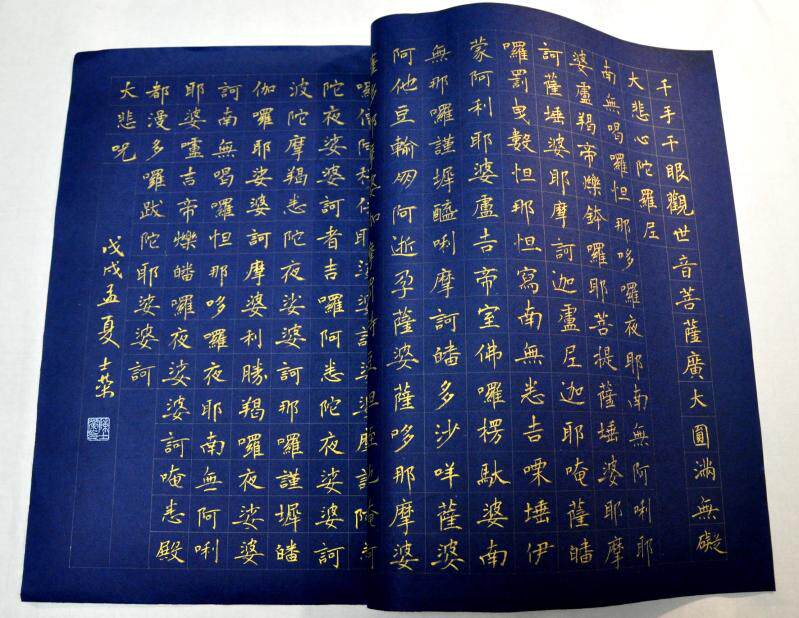 千手千眼觀世音菩薩廣大圓滿無礙
大悲心陀羅尼
南無喝囉怛那哆囉夜耶南無阿唎耶
婆盧羯帝爍鉢囉耶菩提薩埵婆耶摩
訶薩埵婆耶摩訶迦盧尼迦耶唵薩皤
囉罰曳數怛那怛寫南無悉吉嘌埵伊
蒙阿利耶婆盧吉帝室佛囉楞馱婆南
無那囉謹墀醯唎摩訶皤多沙咩薩婆
阿他豆輸朋阿逝孕薩婆薩哆那摩婆
陀夜娑婆訶者吉囉阿悉陀夜娑婆訶
波陀摩羯悉陀夜娑婆訶那囉謹墀皤
伽囉耶娑婆訶摩婆利勝羯囉夜娑婆
訶南無喝囉怛那哆囉夜耶南無阿唎
耶婆嚧吉帝爍皤囉夜娑婆訶唵悉殿
都漫多囉跋陀耶娑婆訶
大悲咒
戊戌孟夏 士榮